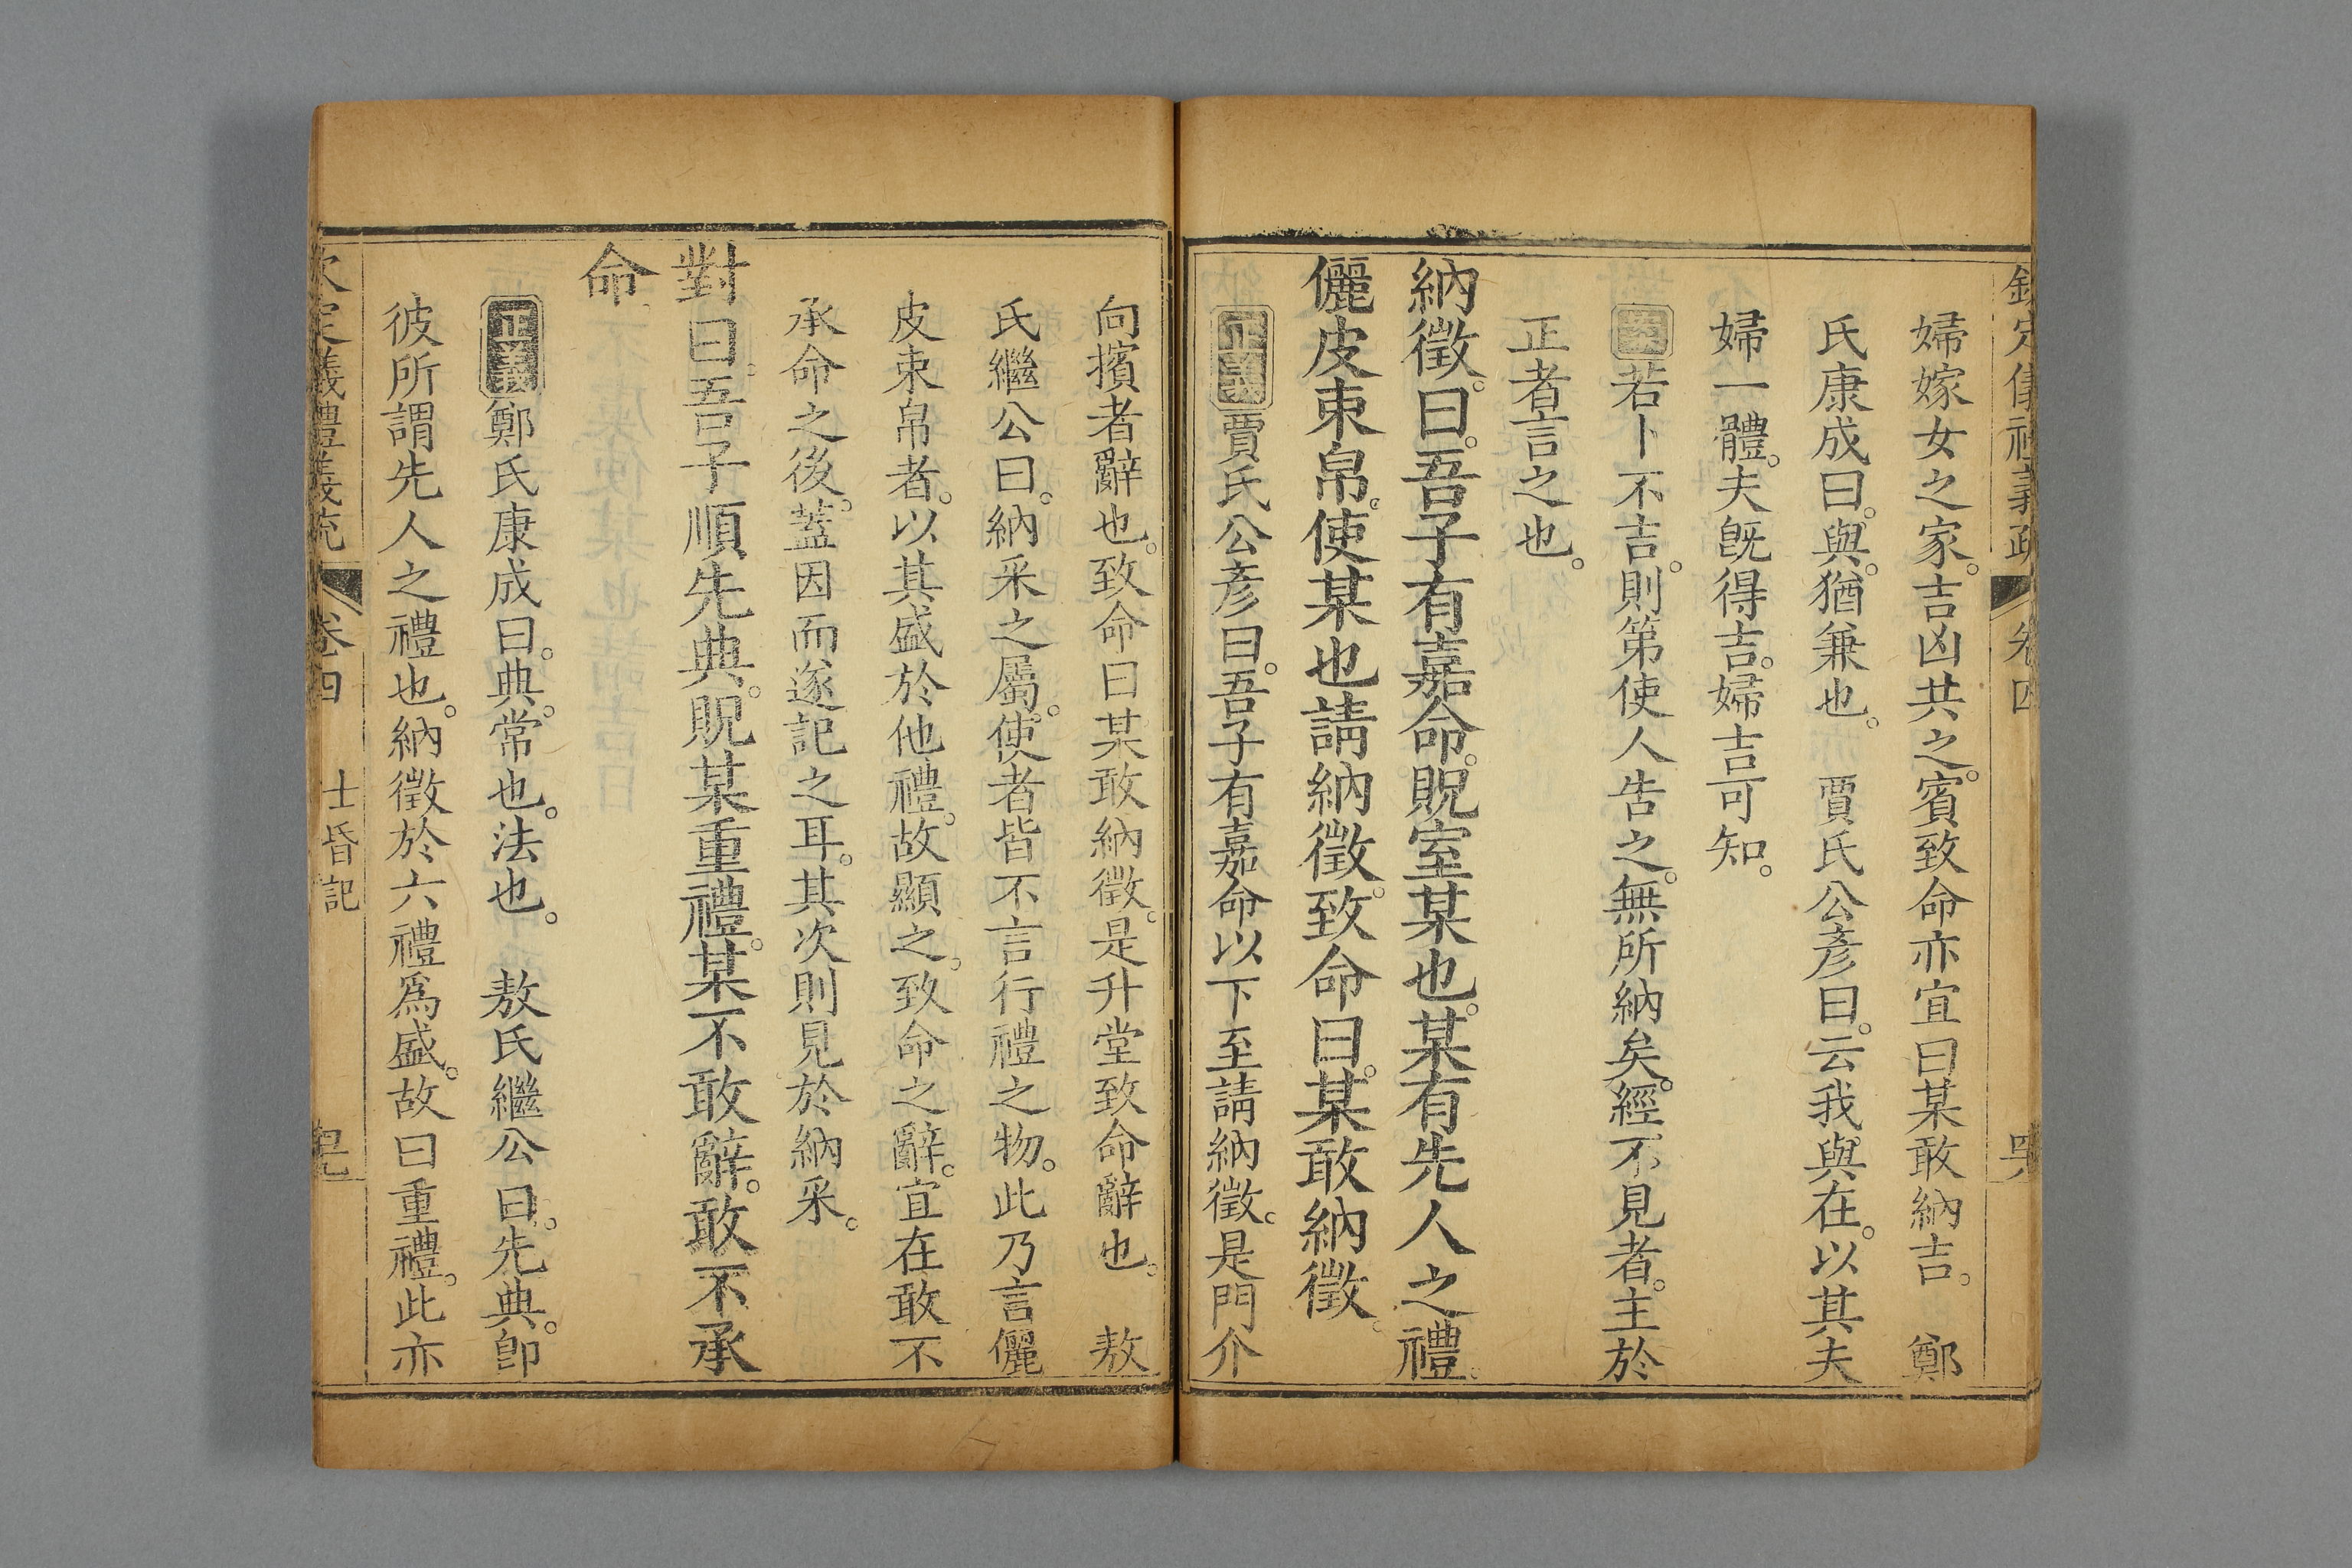 欽定儀禮義疏 卷四
婦嫁女之家。吉凶共之。賓致命亦宜曰某敢納吉。 鄭
氏康成曰。與。猶兼也。 賈氏公彥曰。云我與在。以其夫
婦一體。夫旣得吉。婦吉可知。
案若卜不吉。則第使人告之。無所納矣。經不見者。主於
正者言之也。
納徵。曰。吾子有嘉命。貺室某也。某有先人之禮。
儷皮束帛。使某也請納徵。致命曰。某敢納徵。
正義賈氏公彥曰。吾子有嘉命以下至請納徵。是門介
向擯者辭也。致命曰某敢納徵。是升堂致命辭也。 敖
氏繼公曰。納采之屬。使者皆不言行禮之物。此乃言儷
皮束帛者。以其盛於他禮。故顯之。致命之辭。宜在敢不
承命之後。蓋因而遂記之耳。其次則見於納采。
對曰。吾子順先典。貺某重禮。某不敢辭。敢不承
命。
正義鄭氏康成曰。典。常也。法也。 敖氏繼公曰。先典。卽
彼所謂先人之禮也。納徵於六禮爲盛。故曰重禮。此亦
欽定儀禮義疏 卷四 士昏記